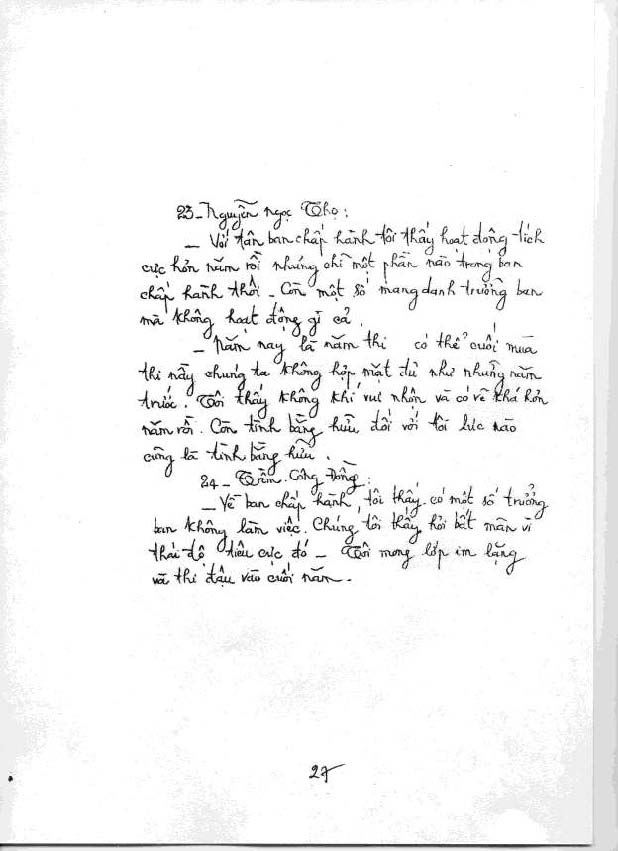 23_ Nguyễn Ngọc Thọ :
_ Với tân ban chấp hành tôi thấy hoạt động tích
cực hơn năm rồi nhưng chỉ một phần nào trong ban
chấp hành thôi _ Còn một số mang danh trưởng ban
mà không hoạt động gì cả.
_ Năm nay là năm thi có thể cuối mùa
thi nầy chúng ta không họp mặt đủ như những năm
trước. Tôi thấy không khí vui nhộn và có vẻ khá hơn
năm rồi. Còn tình bằng hữu đối với tôi lúc nào
cũng là tình bằng hữu.
24_ Trần Công Đồng:
_ Về ban chấp hành, tôi thấy có một số trưởng
ban không làm việc. Chúng tôi thấy hơi bất mãn vì
thái độ tiêu cực đó _ Tôi mong lớp im lặng
và thi đậu vào cuối năm _
27